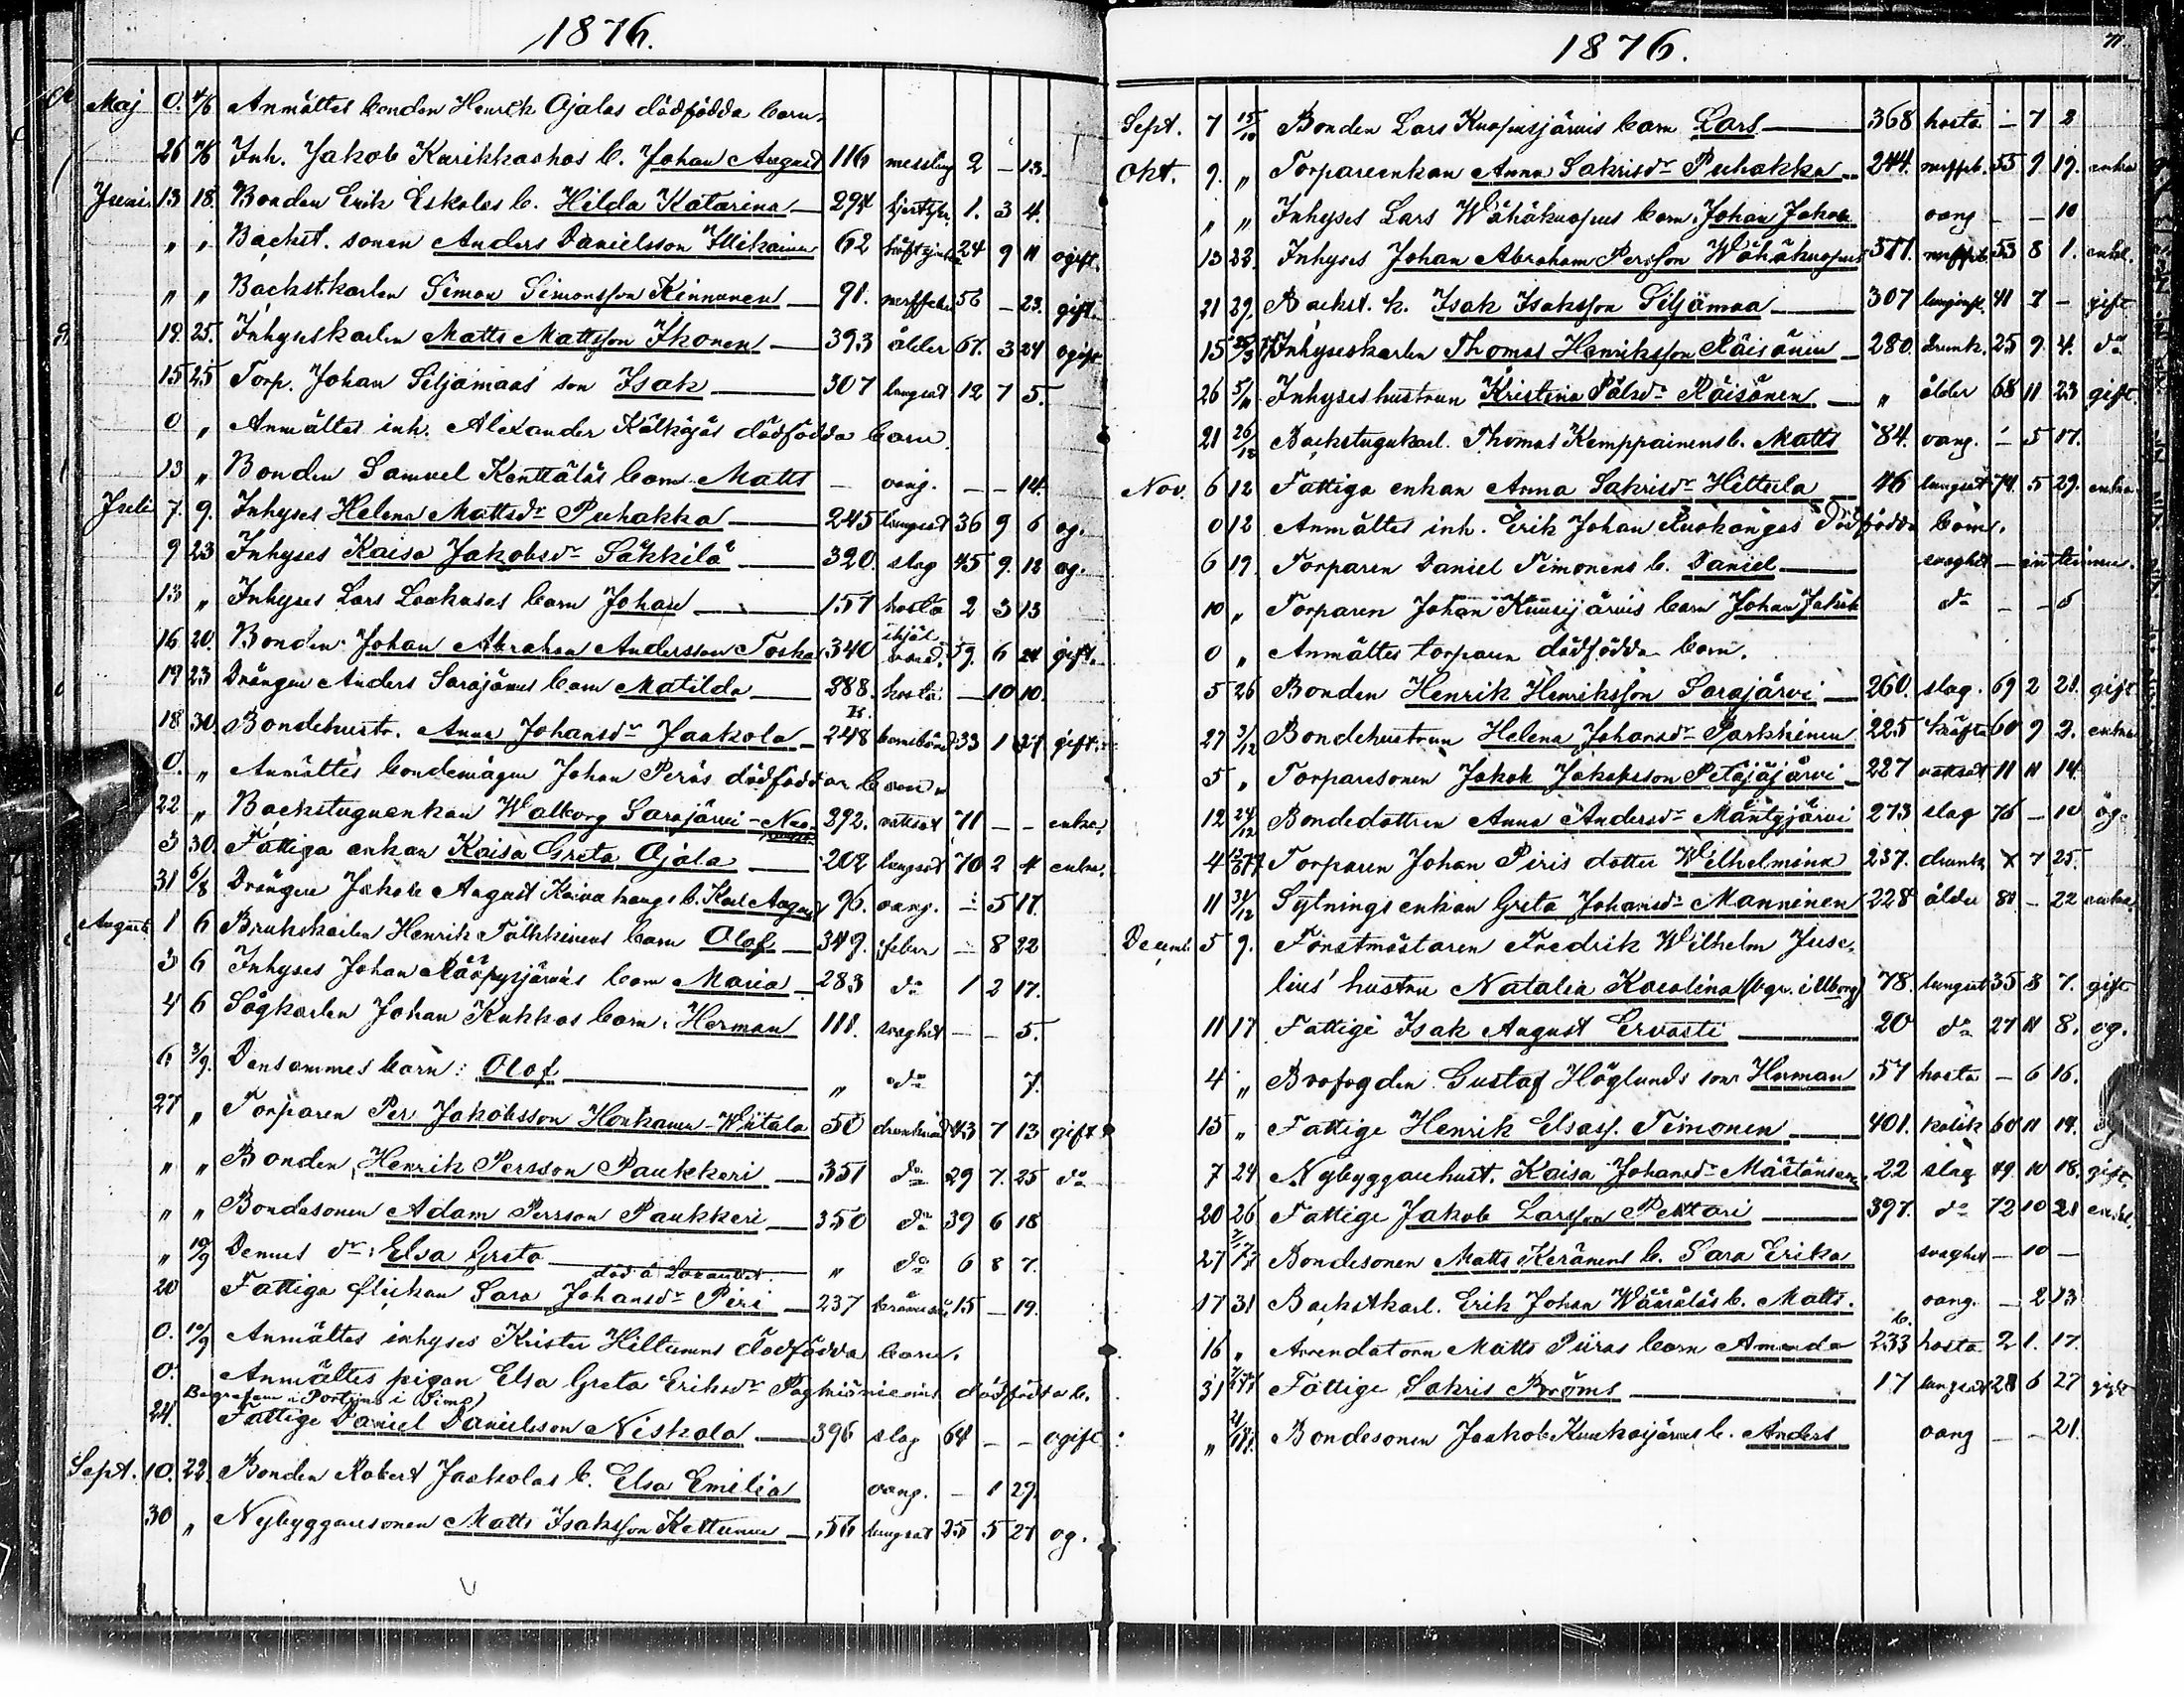 1876.
Maj 0. 4/6 Anmältes bonden Henrik Ojalas dödfödda barn.
26 11/6 Inh. Jakob Karikkashos b. Johan August 116 messling 2 – 13.
Juni 13 18. Bonden Erik Eskolas b. Hilda Katarina 294 1. 3 4.
" " Backst. sonen Anders Danielsson Illikainen 62 24 9 11 ogift.
" " Backst.karlen Simon Simonsson Kinnunen 91. nerffeber 56 – 23. gift.
19. 25. Inhyseskarlen Matts Mattsson Ikonen 393 ålder 67. 3 24 ogift
15 25 Torp. Johan Siljämaas' son Isak 307 lungsot 12 7 5.
0 " Anmältes inh. Alexander Kälkäjäs dödfödda barn
13 " Bonden Samuel Kenttäläs barn Matts – oang. – – 14.
Juli 7. 9. Inhyses Helena Mattsdr Puhakka 245 lungsot 36 9 6 og.
9 23 Inhyses Kaisa Jakobsdr Säkkilä 320. slag 45 9. 12 og.
13 " Inhyses Lars Laakasas barn Johan 157 hosta 2 3 13
16 20. Bonden Johan Abraham Andersson Toska 340 ihjäl 59. 6 24 gift.
19 23 Drängen Anders Sarajärvis barn Matilda 288. hosta – 10 10.
18. 30. Bondehustr. Anna Johansdr Jaakola 248 barnsbörd 33 1 27 gift.
0. " Anmältes bondemågen Johan Peräs dödfödda barn.
22 " Backstuguenkan Walborg Sarajärvi 292. vattsot 71 – – enka.
3 30. Fattiga enkan Kaisa Greta Ojala 202 lungsot 70 2 4 enka.
31 6/8 Drängen Jakob August Kaivakangs b. Karl August 96. oang. – 5 17.
August. 1 6 Brukskarlen Henrik Tolkkinens barn Olof 349. feber – 8 22
3 6 Inhyses Johan Rääpysjärvis barn Maria 283 do 1 2 17.
4 6 Sågkarlen Johan Kukkos barn: Herman 111. svaghet – – 5.
6. 3/9. Densammes barn: Olof " do 7.
27 " Torparen Per Jakobsson Honkanen-Wiitala 50 drunknad 43 7 13 gift
" " Bonden Henrik Persson Paukkeri 351 do 29 7. 25 do
" " Bondesonen Adam Persson Paukkeri 350 do 39 6 18
" 10/9 Dennes dr: Elsa Greta " do 6 8 7.
död å Lazarettet.
20 Fattiga flickan Sara Johansdr Piri 237 15 – 19.
0. 10/9 Anmältes inhyses Krister Hiltunens dödfödda barn.
0. Anmältes pigan Elsa Greta Eriksdr dödfödda b.
Begrafven i Portimo i Simo)
24. Fattige Daniel Danielsson Niskala 396 slag 64 – – ogift
Sept. 10. 22. Bonden Robert Jaakolas b. Elsa Emilia oang. – 1 29.
30 " Nybyggaresonen Matts Isaksson Kettunen 56 lungsot 25 5 27 og.
1876.
77.
Sept. 7 15/10 Bonden Lars Kuopusjärvis barn Lars 368 hosta – 7 2
Okt. 9. " Torpareenkan Anna Sakrisdr Puhakka 244. nerffeb. 55 9. 19. enka
" " Inhyses Lars Wähäkuopus barn Johan Jakob oang – – 10
13 22. Inhyses Johan Abraham Persson Wähäkuopus 377. nerffeb. 53 8 1. enkl.
21 29. Backst. k. Isak Isaksson Siljämaa 307 lunginfl. 41 7 – gift
15 Inhyseskarlen Thomas Henriksson Räisänen 280 drunk. 25 9. 4. do
26 5/11 Inhyseshustrun Kristina Pålsdr Räisänen " ålder 68 11 23 gift.
21 26/12 Backstugukarl. Thomas Kemppainens b. Matts 84. oang. – 5 17.
Nov. 6 12 Fattiga enkan Anna Sakrisdr Hiltula 46 lungsot 74. 5 29. enka
0 12 Anmältes inh. Erik Johan Ruokangas dödfödda barn.
6 19. Torparen Daniel Timonens b. Daniel svaghet – en timme.
10 " Torparen Johan Kuusijärvis barn Johan Jakob do – – 5
0 " Anmältes torparen dödfödda barn.
5 26 Bonden Henrik Henriksson Sarajärvi 260. slag. 69 2 21. gift
27 3/12 Bondehustrun Helena Johansdr Parkkinen 225 kräfta 60 9 2. enka
5 " Torparesonen Jakob Jakobsson Petäjäjärvi 227 vattsot 11 11 14.
12 24/12 Bondedottren Anna Andersdr Mäntyjärvi 273 slag 76 – 10 og.
4 Torparen Johan Piris dotter Wilhelmina 237. drunk 7 25.
11 31/12 Sytningsenkan Greta Johansdr Manninen 228 ålder 80 – 22 enka.
Decemb. 5 9. Forstmästaren Fredrik Wilhelm Juse-
lius' hustru Natalia Karolina (bgr. i Uborg) 78. lungsot 35 8 7. gift
11 17 Fattige Isak August Ervasti 20 do 27 11 8. og.
4 " Brofogden Gustaf Höglunds son Herman 57 hosta – 6 16.
15 " Fattige Henrik Elsass. Timonen 401. kolik 60 11 19.
7 24 Nybyggarehust. Kaisa Johansdr 22 slag 49. 10 18. gift.
20 26 Fattige Jakob Larsson Pekkari 397. do 72 10 21
27 Bondesonen Matts Keränens b. Sara Erika svaghet – 10 –
17 31 Backstkarl. Erik Johan Wääräläs b. Matts. oang. – 2 13
16 " Arrendatorn Matts Piiras barn Amanda 233 hosta 2 1. 17.
31 Fattige Sakris Broms 17 lungsot 28 6 27 gift
" Bondesonen Jaakob Kuukasjärvis b. Anders oang – – 21.